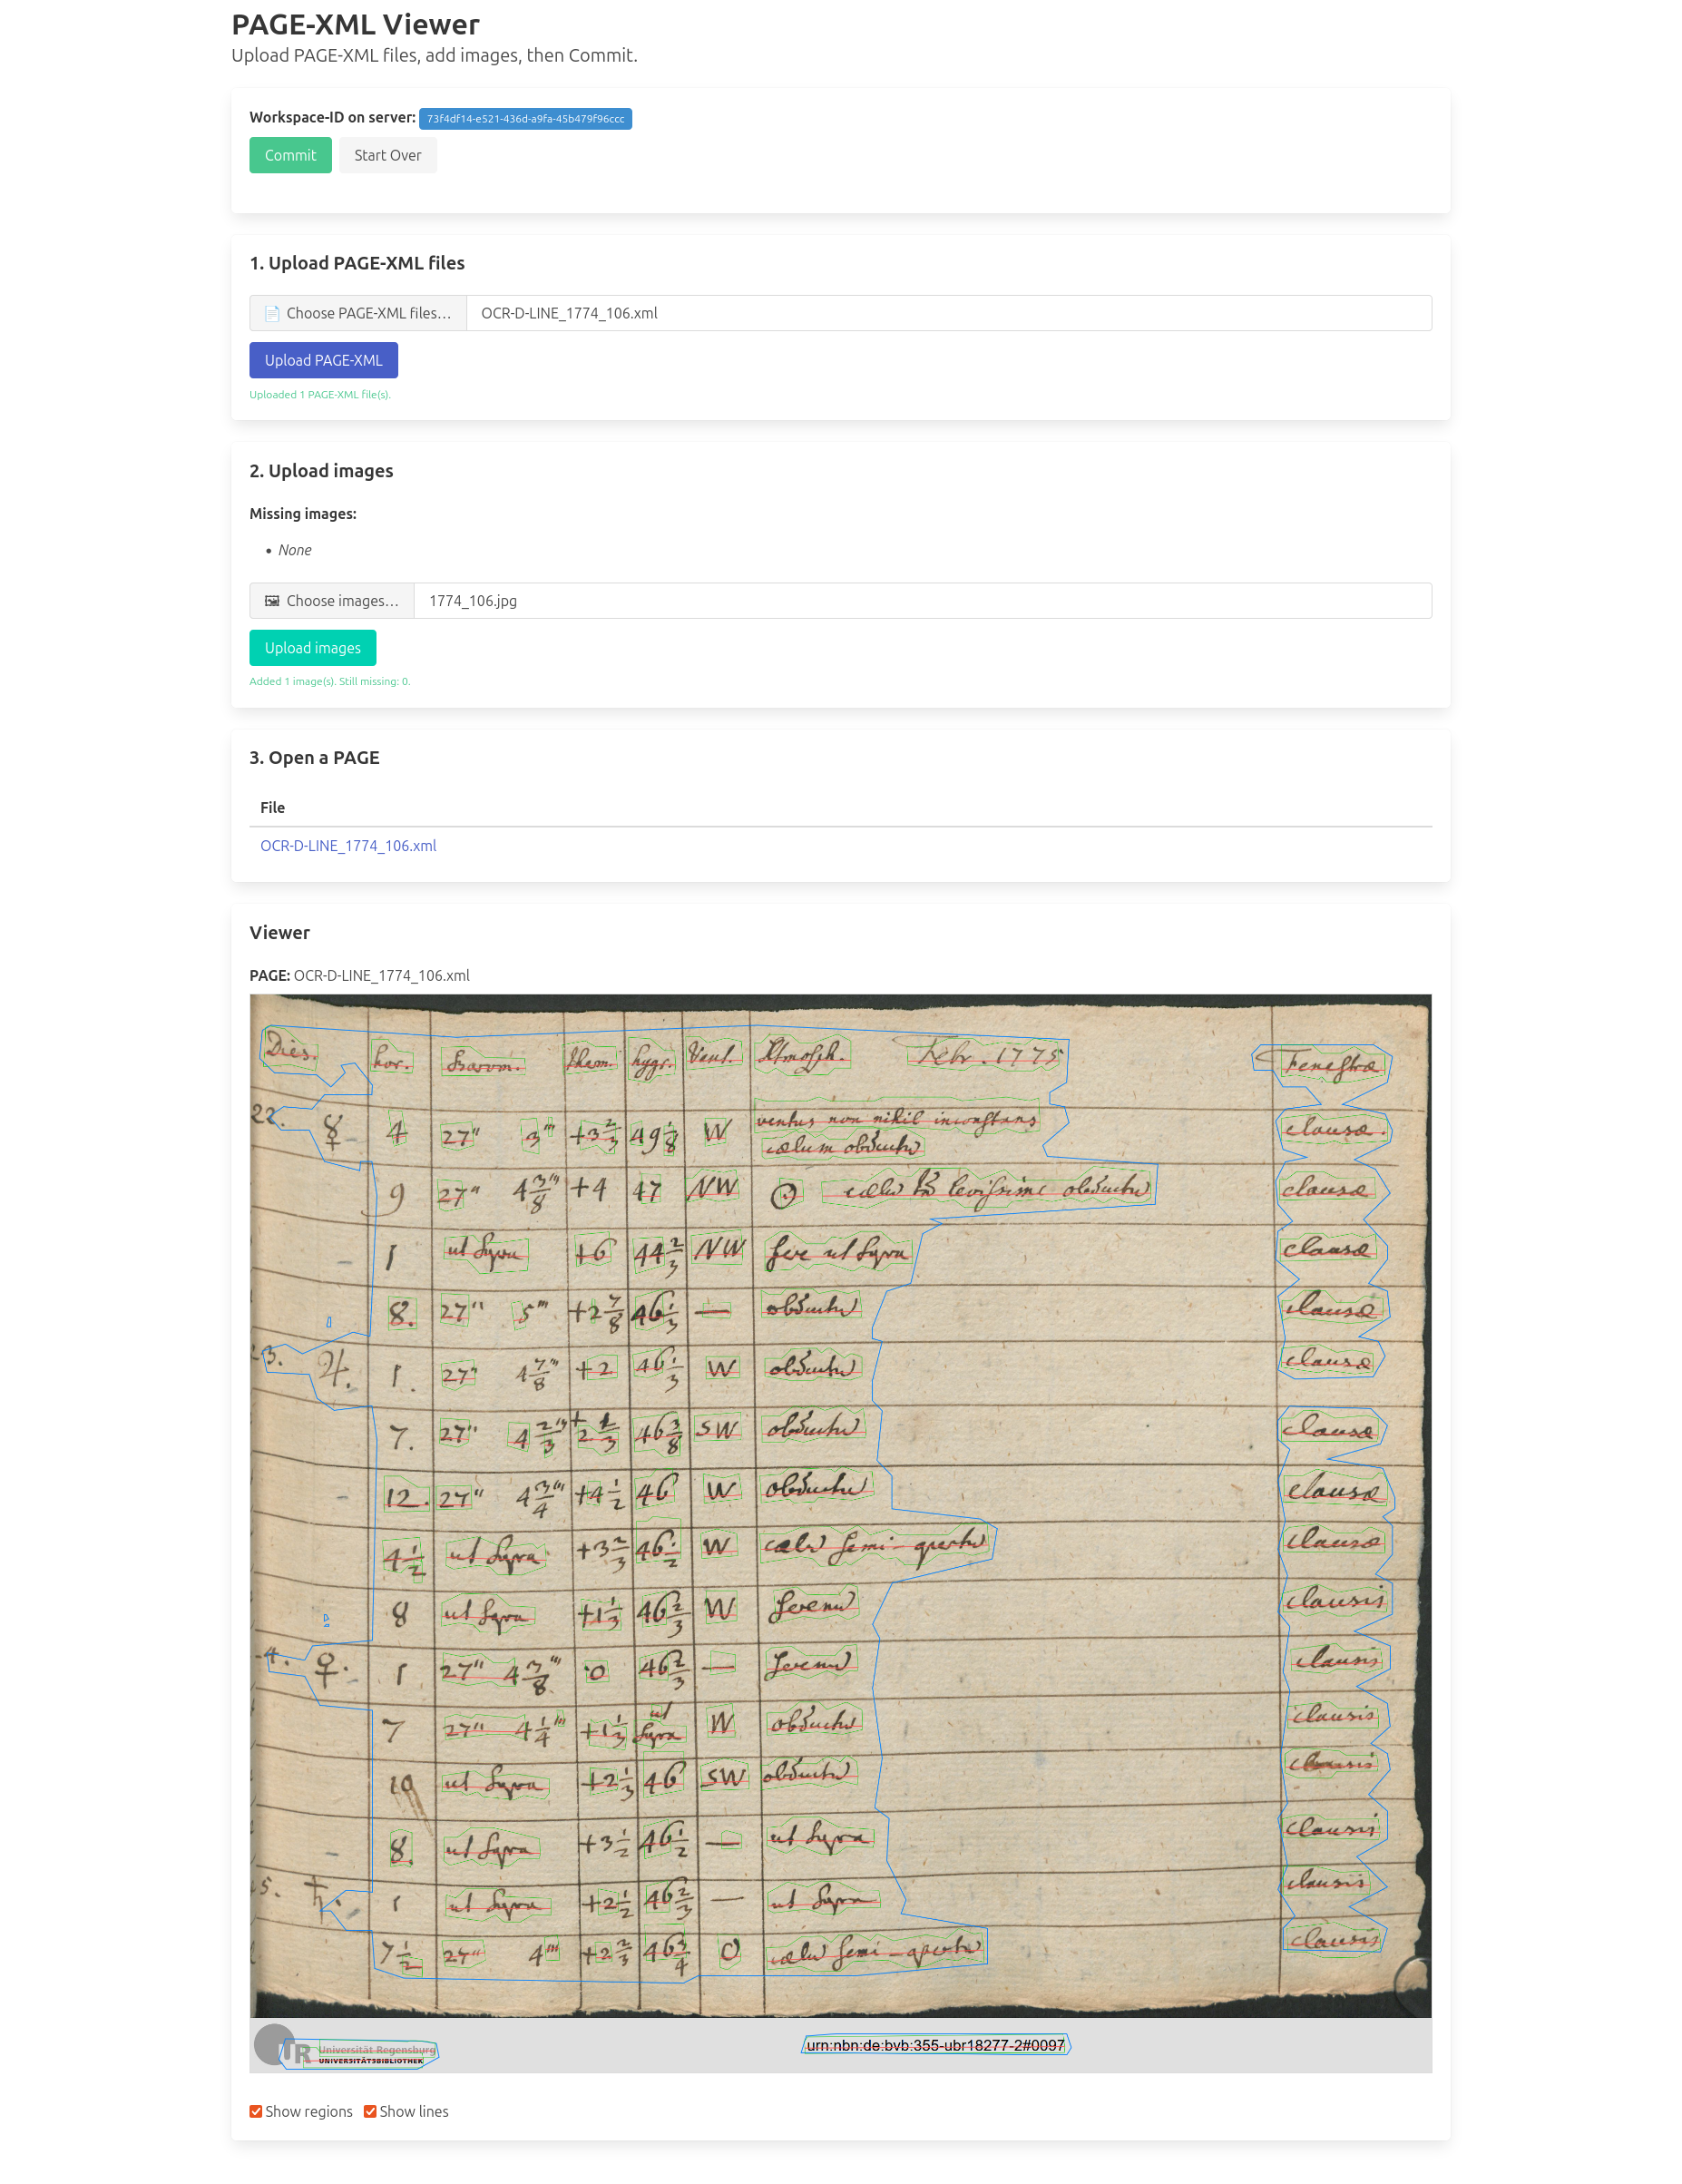 PAGE-XML Viewer
Upload PAGE-XML files, add images, then Commit.
Workspace-ID on server: 73f4df14-e521-436d-a9fa-45b479f96ccc
Commit Start Over
1. Upload PAGE-XML files
Choose PAGE-XML files… OCR-D-LINE_1774_106.xml
Upload PAGE-XML
Uploaded 1 PAGE-XML file(s).
2. Upload images
Missing images:
• None
Choose images… 1774_106.jpg
Upload images
Added 1 image(s). Still missing: 0.
3. Open a PAGE
File
OCR-D-LINE_1774_106.xml
Viewer
PAGE: OCR-D-LINE_1774_106.xml
Dies. hor. Barom. therm. hygr. Vent. Atmosph. Febr. 1775 Fenestræ
22. ☿ 4 27" 3‴ +3 2/3 49 1/8 W ventus non nihil inconstans clausæ.
cælum obductu
9 27" 4 3/8‴ +4 47 NW ☉ cælu levissime obductu clausæ
1 ut supra +6 44 2/3 NW fere ut supra clausæ
8. 27" 5‴ +2 7/8 46 1/3 — obductu clausæ
3. ♃. 1. 27" 4 7/8‴ +2 46 1/3 W obductu clausæ
7. 27" 4 2/3‴ +2 1/3 46 3/8 SW obductu clausæ
12. 27" 4 3/4‴ +4 1/2 46 W obductu clausæ
4 1/2 ut supra +3 2/3 46 1/2 W cælu semi-apertu clausæ
8 ut supra +1 1/3 46 2/3 W serenu clausis
4. ♀. 1 27" 4 3/8‴ 0 46 2/3 — serenu clausis
7 27" 4 1/4‴ +1 1/3 ut supra W obductu clausis
10 ut supra +2 1/3 46 SW obductu clausis
8. ut supra +3 1/2 46 1/2 — ut supra clausis
5. ♄. 1 ut supra +2 1/2 46 2/3 — ut supra clausis
7 1/2 27" 4‴ +2 2/3 46 3/4 O cælu semi-apertu clausis
UR Universität Regensburg
UNIVERSITÄTSBIBLIOTHEK
urn:nbn:de:bvb:355-ubr18277-2#0097
Show regions Show lines